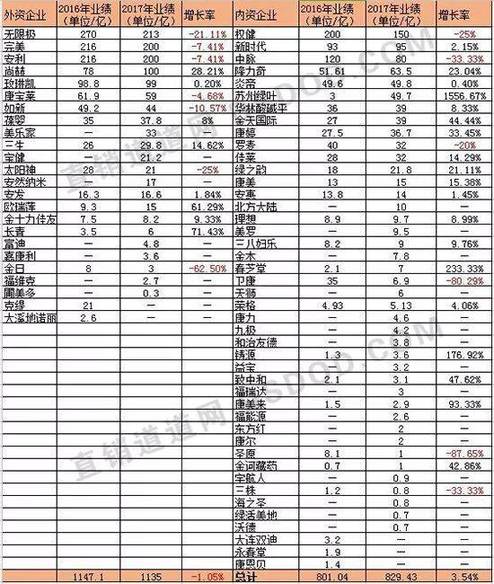 外资企业 2016年业绩(单位/亿) 2017年业绩(单位/亿) 增长率 内资企业 2016年业绩(单位/亿) 2017年业绩(单位/亿) 增长率
无限极 270 213 -21.11% 权健 200 150 -25%
完美 216 200 -7.41% 新时代 93 95 2.15%
安利 216 200 -7.41% 中脉 120 80 -33.33%
尚赫 78 100 28.21% 隆力奇 51.61 63.5 23.04%
玫琳凯 98.8 99 0.20% 炎帝 49.6 49.8 0.40%
康宝莱 61.9 59 -4.68% 苏州绿叶 3 49.7 1556.67%
如新 49.2 44 -10.57% 华林酸碱平 36 39 8.33%
葆婴 35 37.8 8% 金天国际 27 39 44.44%
美乐家 — 33 — 康婷 27.5 36.7 33.45%
三生 26 29.8 14.62% 罗麦 40 32 -20%
宝健 — 21.2 — 佳莱 28 32 14.29%
太阳神 28 21 -25% 绿之韵 18 21.8 21.11%
安然纳米 — 17 — 康美 13 15 15.38%
安发 16.3 16.6 1.84% 安惠 13.8 14 1.45%
欧瑞莲 9.3 15 61.29% 北方大陆 — 10 —
金士力佳友 7.5 8.2 9.33% 理想 8.9 9.7 8.99%
长青 3.5 6 71.43% 美罗 — 9.5 —
富迪 — 4.8 — 三八妇乐 8.2 9 9.76%
嘉康利 — 3.6 — 金木 — 7.8 —
金日 8 3 -62.50% 春芝堂 2.1 7 233.33%
福维克 — 2.7 — 卫康 35 6.9 -80.29%
圃美多 — 0.3 — 天狮 — 6 —
克缇 21 — — 荣格 4.93 5.13 4.06%
大溪地诺丽 2.6 — — 康力 — 4.6 —
九极 — 4.2 —
和治友德 — 3.8 —
铸源 1.3 3.6 176.92%
益宝 — 3.2 —
致中和 2.1 3.1 47.62%
福瑞达 — 3 —
康美来 1.5 2.9 93.33%
福能源 — 2.6 —
东方红 — 2 —
康尔 — 2 —
圣原 8.1 1 -87.65%
金诃藏药 0.7 1 42.86%
宇航人 — 0.9 —
三株 1.2 0.8 -33.33%
海之圣 — 0.8 —
绿活美地 — 0.7 —
沃德 — 0.7 —
大连双迪 3.2 — —
永春堂 1.9 — —
康恩贝 1.4 — —
1147.1 1135 -1.05% 总计 801.04 829.43 3.54%
直销道道网